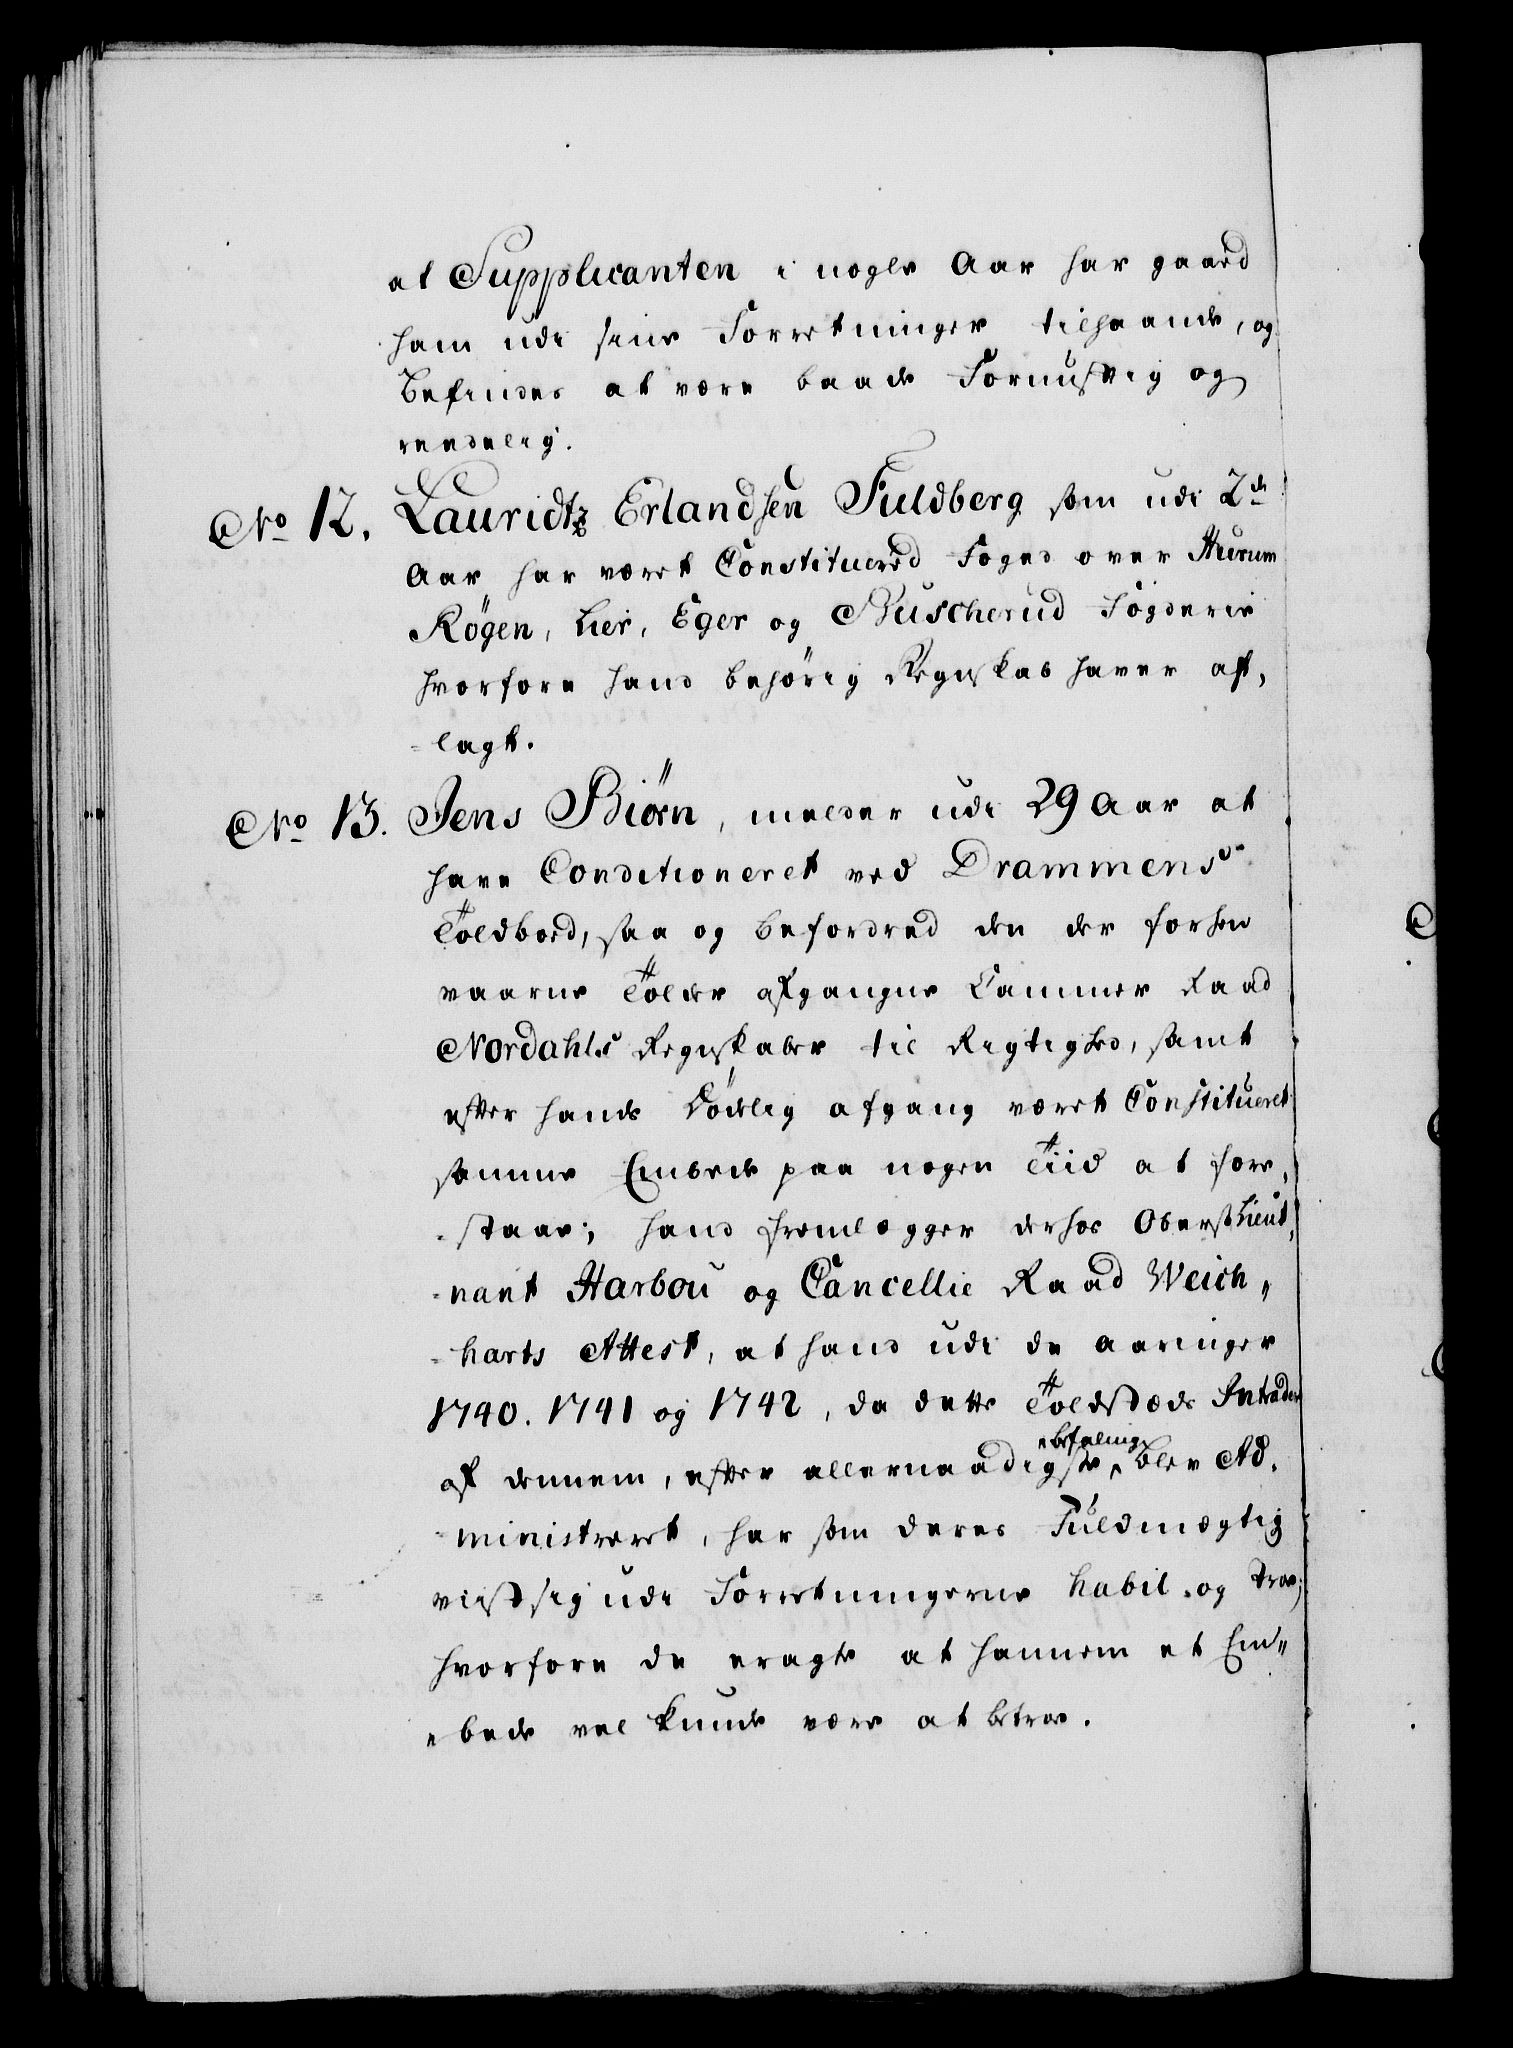 at Supplicanten i nogle Aar har gaaed
ham udi sine Forretninger tilhaande, og
befindes at være baade Fornuftig og
reedelig.
No 12. Lauridtz Erlandsen Fuldberg som udi 2de
Aar har været Constituered Foged over Hurum
Røgen, Lier, Eger og Buscherud Fogderie
hvorfore hand behørig Regnskab haver af,
-lagt.
No 13. Jens Biørn, melder udi 29 Aar at
have Conditioneret ved Drammens
Toldboed, saa og befordred den der forhen
vaarne Tolder afgangne Cammer Raad
Nordahls Regnskaber til Rigtighed, samt
efter hands Dødelig afgang været Constitueret
samme Embede paa nogen Tiid at fore,
-staae; hand fremlægger derhos Oberstlieut,
-nant Harbou og Cancellie Raad Weich„
-harts Attest, at hand udi de Aaringer
1740. 1741 og 1742, da dette Toldstæds Intrader
af dennem, efter allernaadigste befaling blev Ad,
-ministreret, har som deres Fuldmægtig
viist sig udi Forretningerne habil og troe;
hvorfore de eragte at hannem et Em„
„bede vel kunde være at betroe.